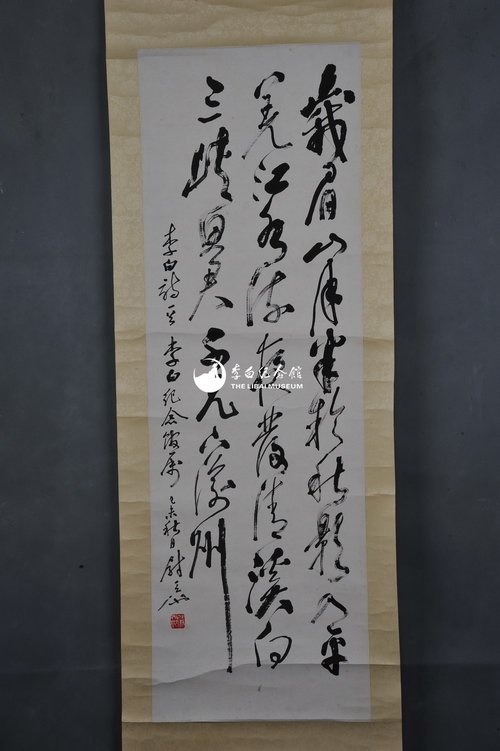 峨眉山月半輪秋影入平
羌江水流夜發清溪向
三峽思君不見下渝州
李白詩 李白纪念馆属 秋日
李白纪念馆
THE LIBAI MUSEUM